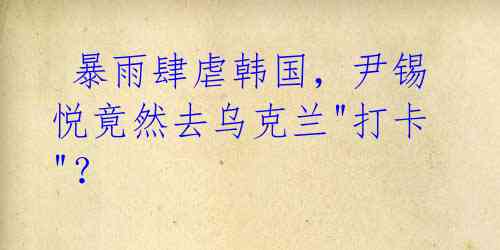 暴雨肆虐韩国，尹锡
悦竟然去乌克兰"打卡
"？